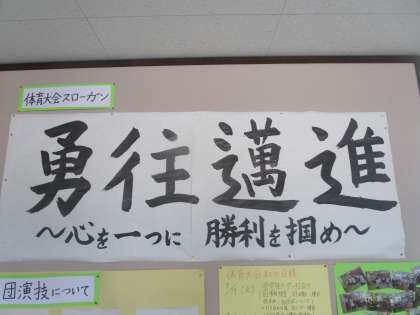 体育大会スローガン
勇往邁進
〜心を一つに 勝利を掴め〜
団演技について
体育大会